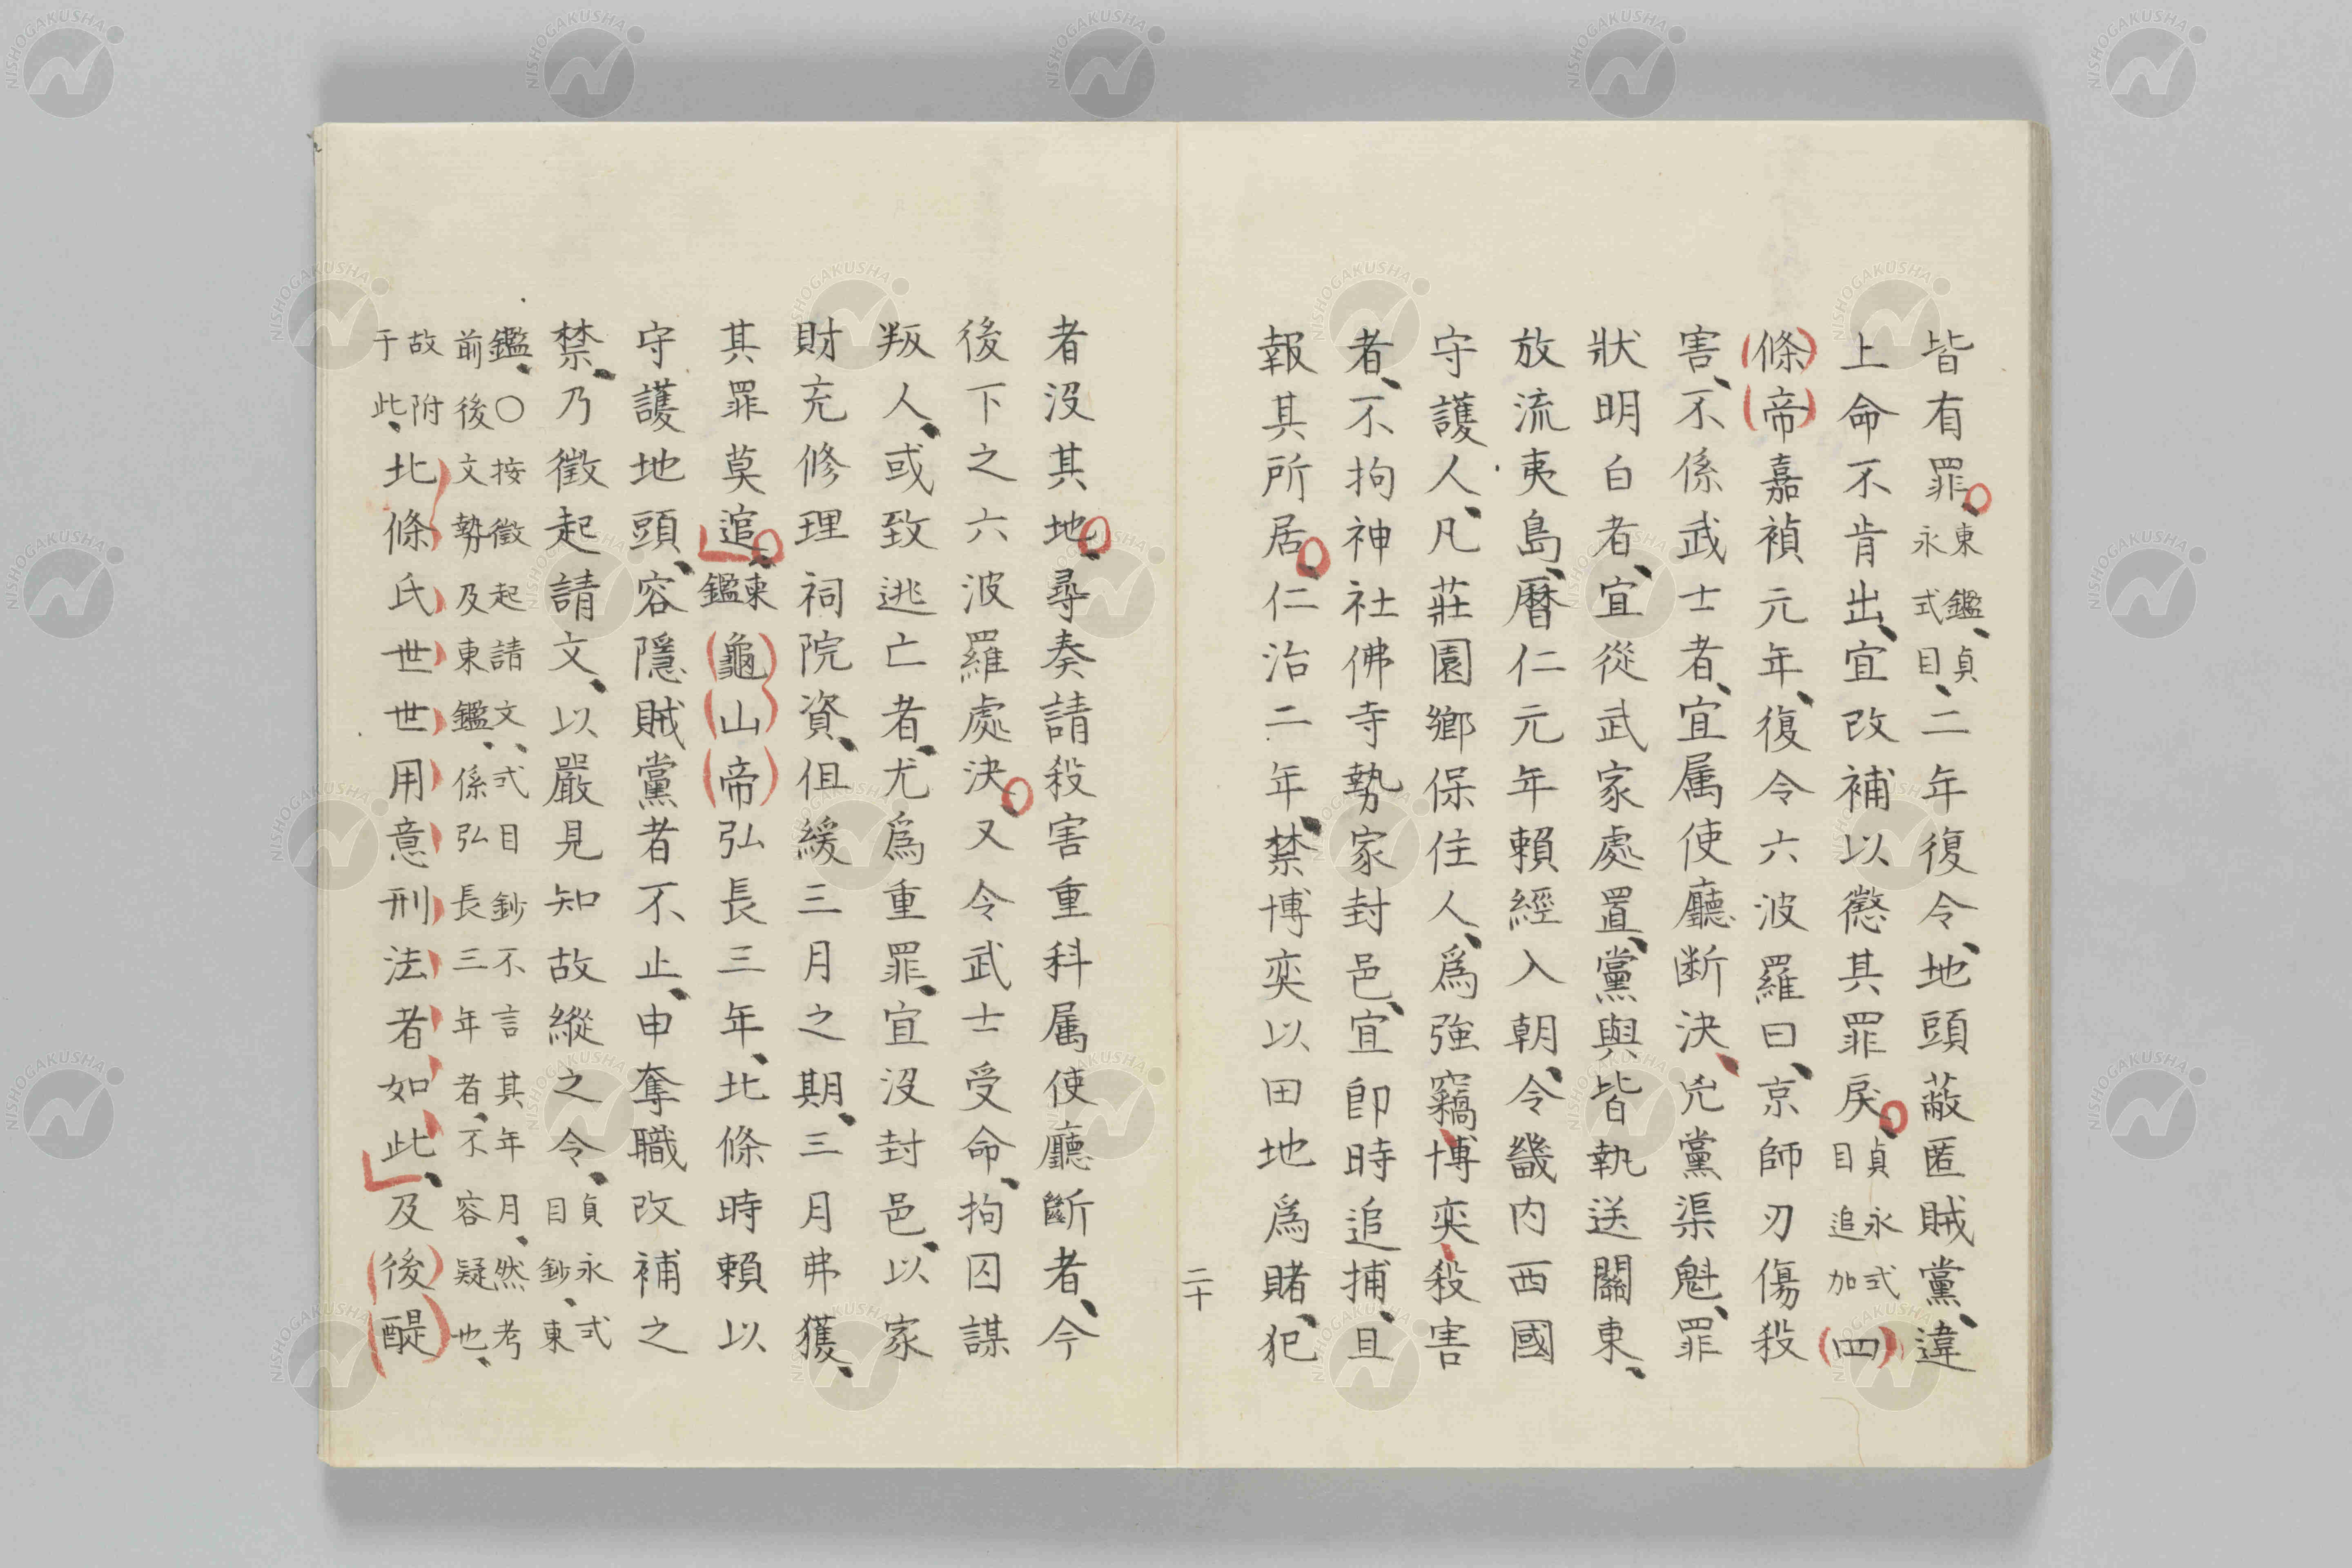 皆有罪、東鑑、貞永式目、二年復令、地頭蔽匿賊黨、違
上命不肯出、宜改補以懲其罪戻、貞永式目追加四
條帝嘉禎元年、復令六波羅曰、京師刃傷殺
害、不係武士者、宜属使廳断決、兇黨渠魁、罪
狀明白者、宜從武家處置、黨與皆執送關東、
放流夷島、曆仁元年賴經入朝、令畿内西國
守護人、凡莊園鄉保住人、爲強竊博奕殺害
者、不拘神社佛寺勢家封邑、宜卽時追捕、且
報其所居、仁治二年、禁博奕以田地爲賭、犯
二十
者沒其地、尋奏請殺害重科属使廳斷者、今
後下之六波羅處決、又令武士受命、拘囚謀
叛人、或致逃亡者、尤爲重罪、宜沒封邑、以家
財充修理祠院資、但緩三月之期、三月弗獲、
其罪莫逭、東鑑龜山帝弘長三年、北條時賴以
守護地頭、容隱賊黨者不止、申奪職改補之
禁、乃徵起請文、以嚴見知故縱之令、貞永式目鈔、東
鑑、〇按徵起請文、式目鈔不言其年月、然考
前後文勢及東鑑、係弘長三年者、不容疑也、
故附于此、北條氏世世用意刑法者如此、及後醍
NISHOGAKUSHA